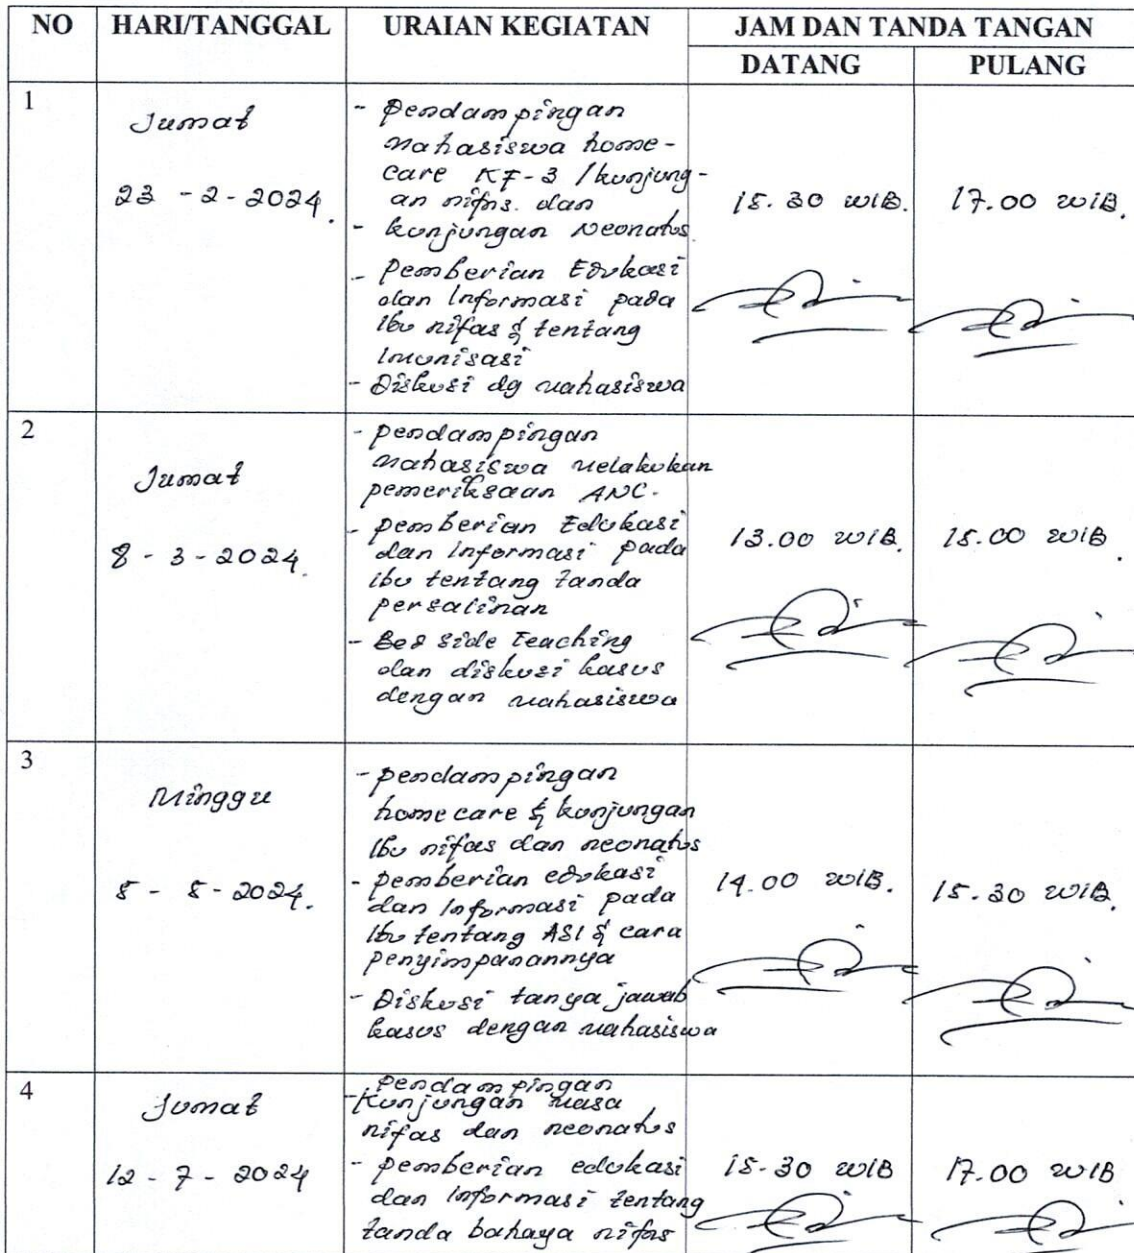 NO HARI/TANGGAL URAIAN KEGIATAN JAM DAN TANDA TANGAN
DATANG PULANG
1
Jumat
23 - 2 - 2024.
- Pendampingan
mahasiswa home-
care KF-3 / kunjung-
an nifas. dan
- kunjungan Neonatus
- Pemberian Edukasi
dan Informasi pada
Ibu nifas & tentang
Imunisasi
- Diskusi dg mahasiswa
15.30 WIB.
17.00 WIB.
2
Jumat
8 - 3 - 2024.
- pendampingan
mahasiswa melakukan
pemeriksaan ANC.
- pemberian Edukasi
dan informasi pada
ibu tentang tanda
persalinan
- Bed side Teaching
dan diskusi kasus
dengan mahasiswa
13.00 WIB.
15.00 WIB
3
Minggu
5 - 5 - 2024.
- pendampingan
home care & kunjungan
Ibu nifas dan neonatus
- pemberian edukasi
dan Informasi pada
Ibu tentang ASI & cara
penyimpanannya
- Diskusi tanya jawab
kasus dengan mahasiswa
14.00 WIB.
15.30 WIB.
4
Jumat
12 - 7 - 2024
- pendampingan
Kunjungan masa
nifas dan neonatus
- pemberian edukasi
dan informasi tentang
tanda bahaya nifas
15.30 WIB
17.00 WIB